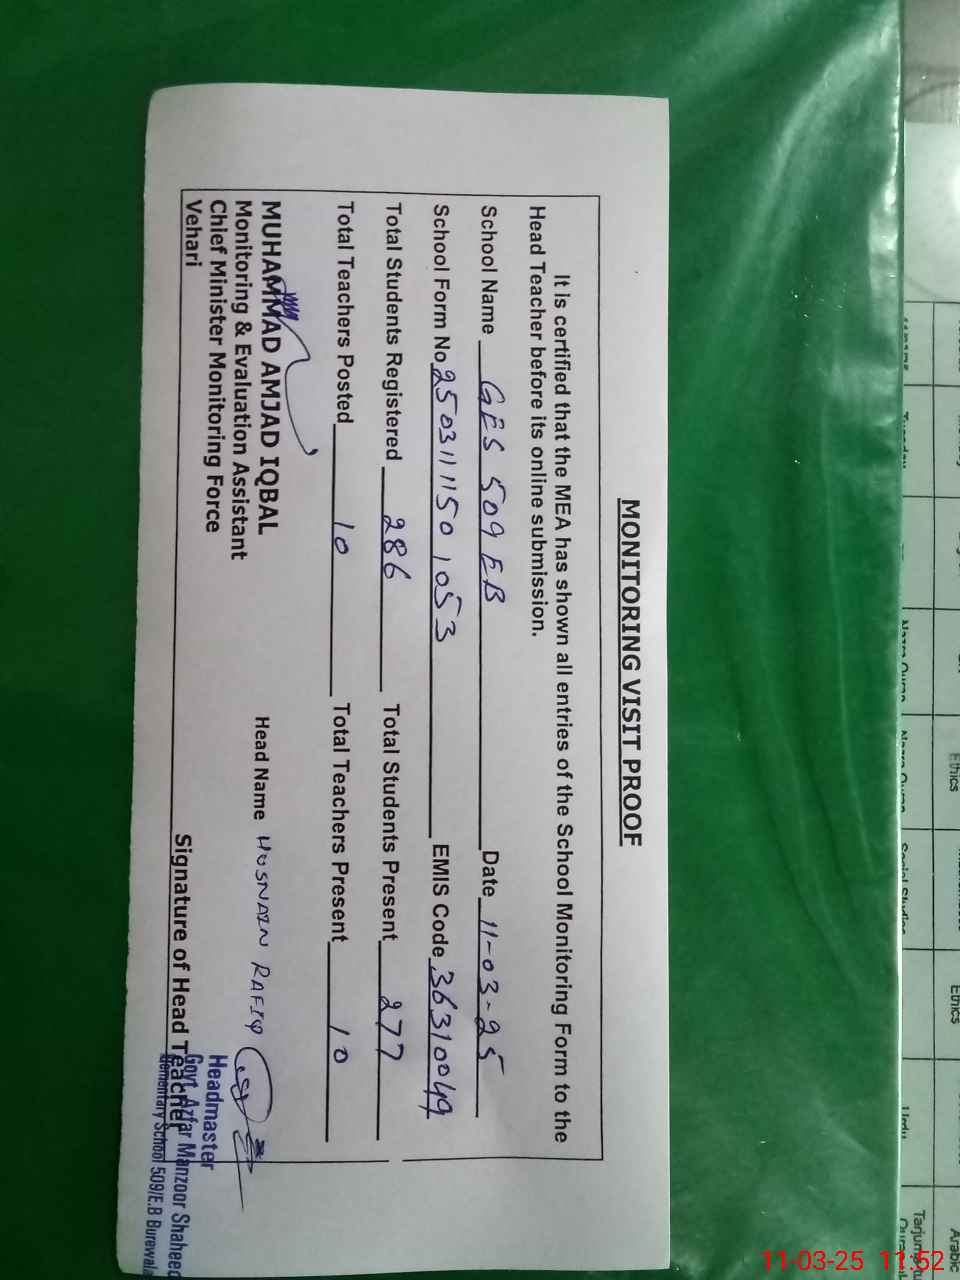 MONITORING VISIT PROOF
It is certified that the MEA has shown all entries of the School Monitoring Form to the
Head Teacher before its online submission.
School Name GES 509 EB Date 11-03-25
School Form No 2503111150 1053 EMIS Code 36310049
Total Students Registered 286 Total Students Present 277
Total Teachers Posted 10 Total Teachers Present 10
MUHAMMAD AMJAD IQBAL
Monitoring & Evaluation Assistant
Chief Minister Monitoring Force
Vehari
Head Name HUSNAIN RAFIQ
Signature of Head Teacher
Headmaster
Govt. Azfar Manzoor Shaheed
Elementary School 509/E.B Burewala
Ethics
Ethics
Social Studies
Urdu
Arabic
11-03-25 11:52